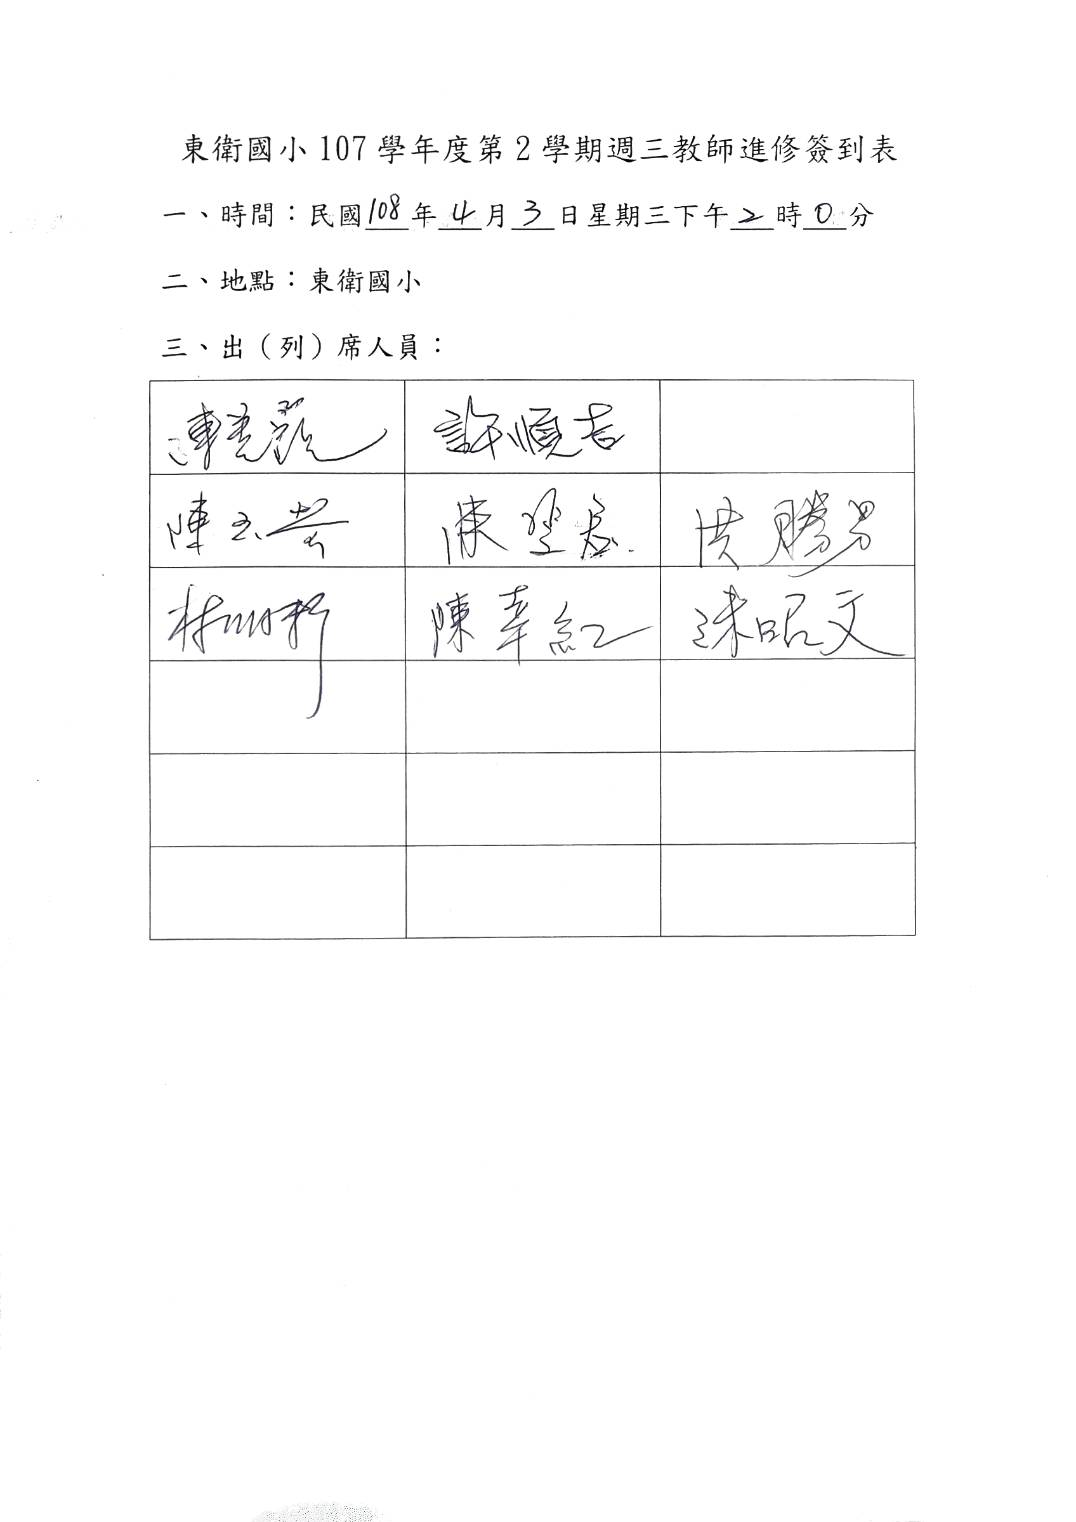 東衛國小107學年度第2學期週三教師進修簽到表
一、時間：民國108年4月3日星期三下午2時0分
二、地點：東衛國小
三、出（列）席人員：
許順吉
陳玉 洪勝男
林 陳幸紅 昭文